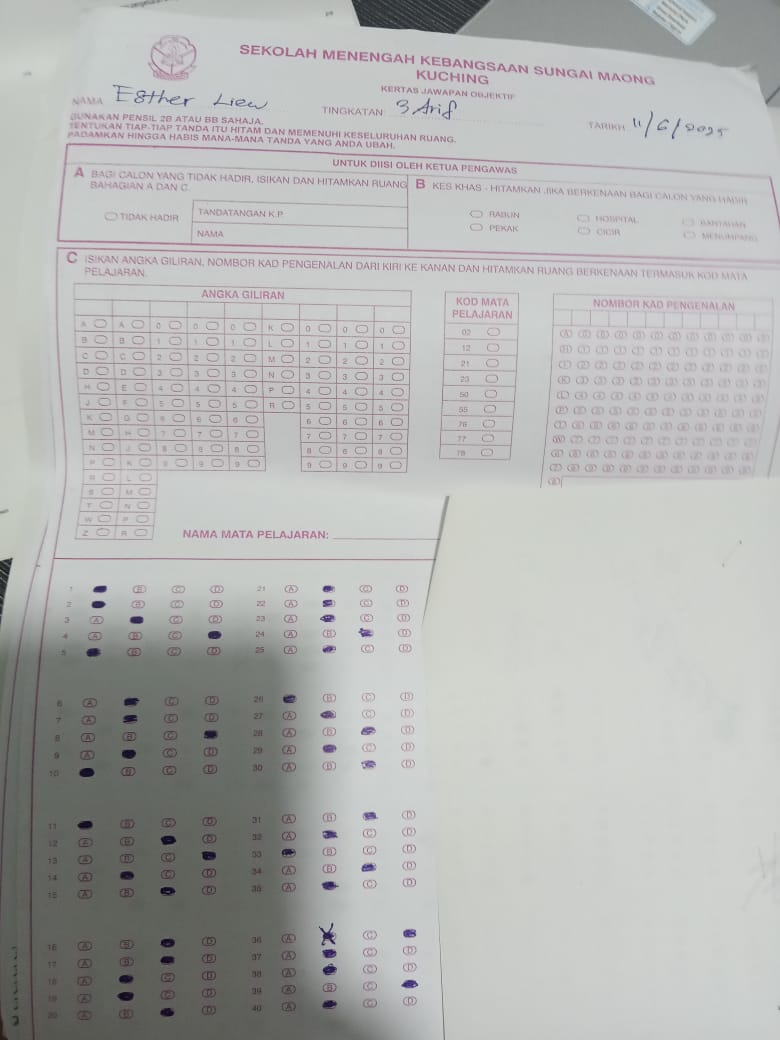 SEKOLAH MENENGAH KEBANGSAAN SUNGAI MAONG
KUCHING
KERTAS JAWAPAN OBJEKTIF
NAMA Esther Liew TINGKATAN 3 Arif TARIKH 11/6/2025
GUNAKAN PENSIL 2B ATAU BB SAHAJA.
TENTUKAN TIAP-TIAP TANDA ITU HITAM DAN MEMENUHI KESELURUHAN RUANG.
PADAMKAN HINGGA HABIS MANA-MANA TANDA YANG ANDA UBAH.
UNTUK DIISI OLEH KETUA PENGAWAS
A BAGI CALON YANG TIDAK HADIR, ISIKAN DAN HITAMKAN RUANG
BAHAGIAN A DAN C.
TIDAK HADIR
TANDATANGAN K.P
NAMA
B KES KHAS - HITAMKAN JIKA BERKENAAN BAGI CALON YANG HADIR
RABUN HOSPITAL BANTAHAN
PEKAK CICIR MENUMPANG
C ISIKAN ANGKA GILIRAN, NOMBOR KAD PENGENALAN DARI KIRI KE KANAN DAN HITAMKAN RUANG BERKENAAN TERMASUK KOD MATA
PELAJARAN.
ANGKA GILIRAN
A A 0 0 0 K 0 0 0
B B 1 1 1 L 1 1 1
C C 2 2 2 M 2 2 2
D D 3 3 3 N 3 3 3
H E 4 4 4 P 4 4 4
J F 5 5 5 R 5 5 5
K G 6 6 6 6 6 6
M H 7 7 7 7 7 7
N J 8 8 8 8 8 8
P K 9 9 9 9 9 9
R L
S M
T N
W P
Z R
KOD MATA
PELAJARAN
02
12
21
23
50
55
76
77
78
NOMBOR KAD PENGENALAN
NAMA MATA PELAJARAN:
1 B C D 21 A C D
2 B C D 22 A C D
3 A C D 23 A C D
4 A B C 24 A B D
5 B C D 25 A C D
6 A C D 26 B C D
7 A C D 27 A C D
8 A B C 28 A B D
9 A C D 29 A C D
10 B C D 30 A B D
11 B C D 31 A B D
12 A B D 32 A C D
13 A B C 33 B C D
14 A C D 34 A B D
15 A B D 35 A C D
16 A B D 36 A C
17 A B D 37 A C D
18 A C D 38 A C D
19 A C D 39 A B C
20 A B D 40 A C D